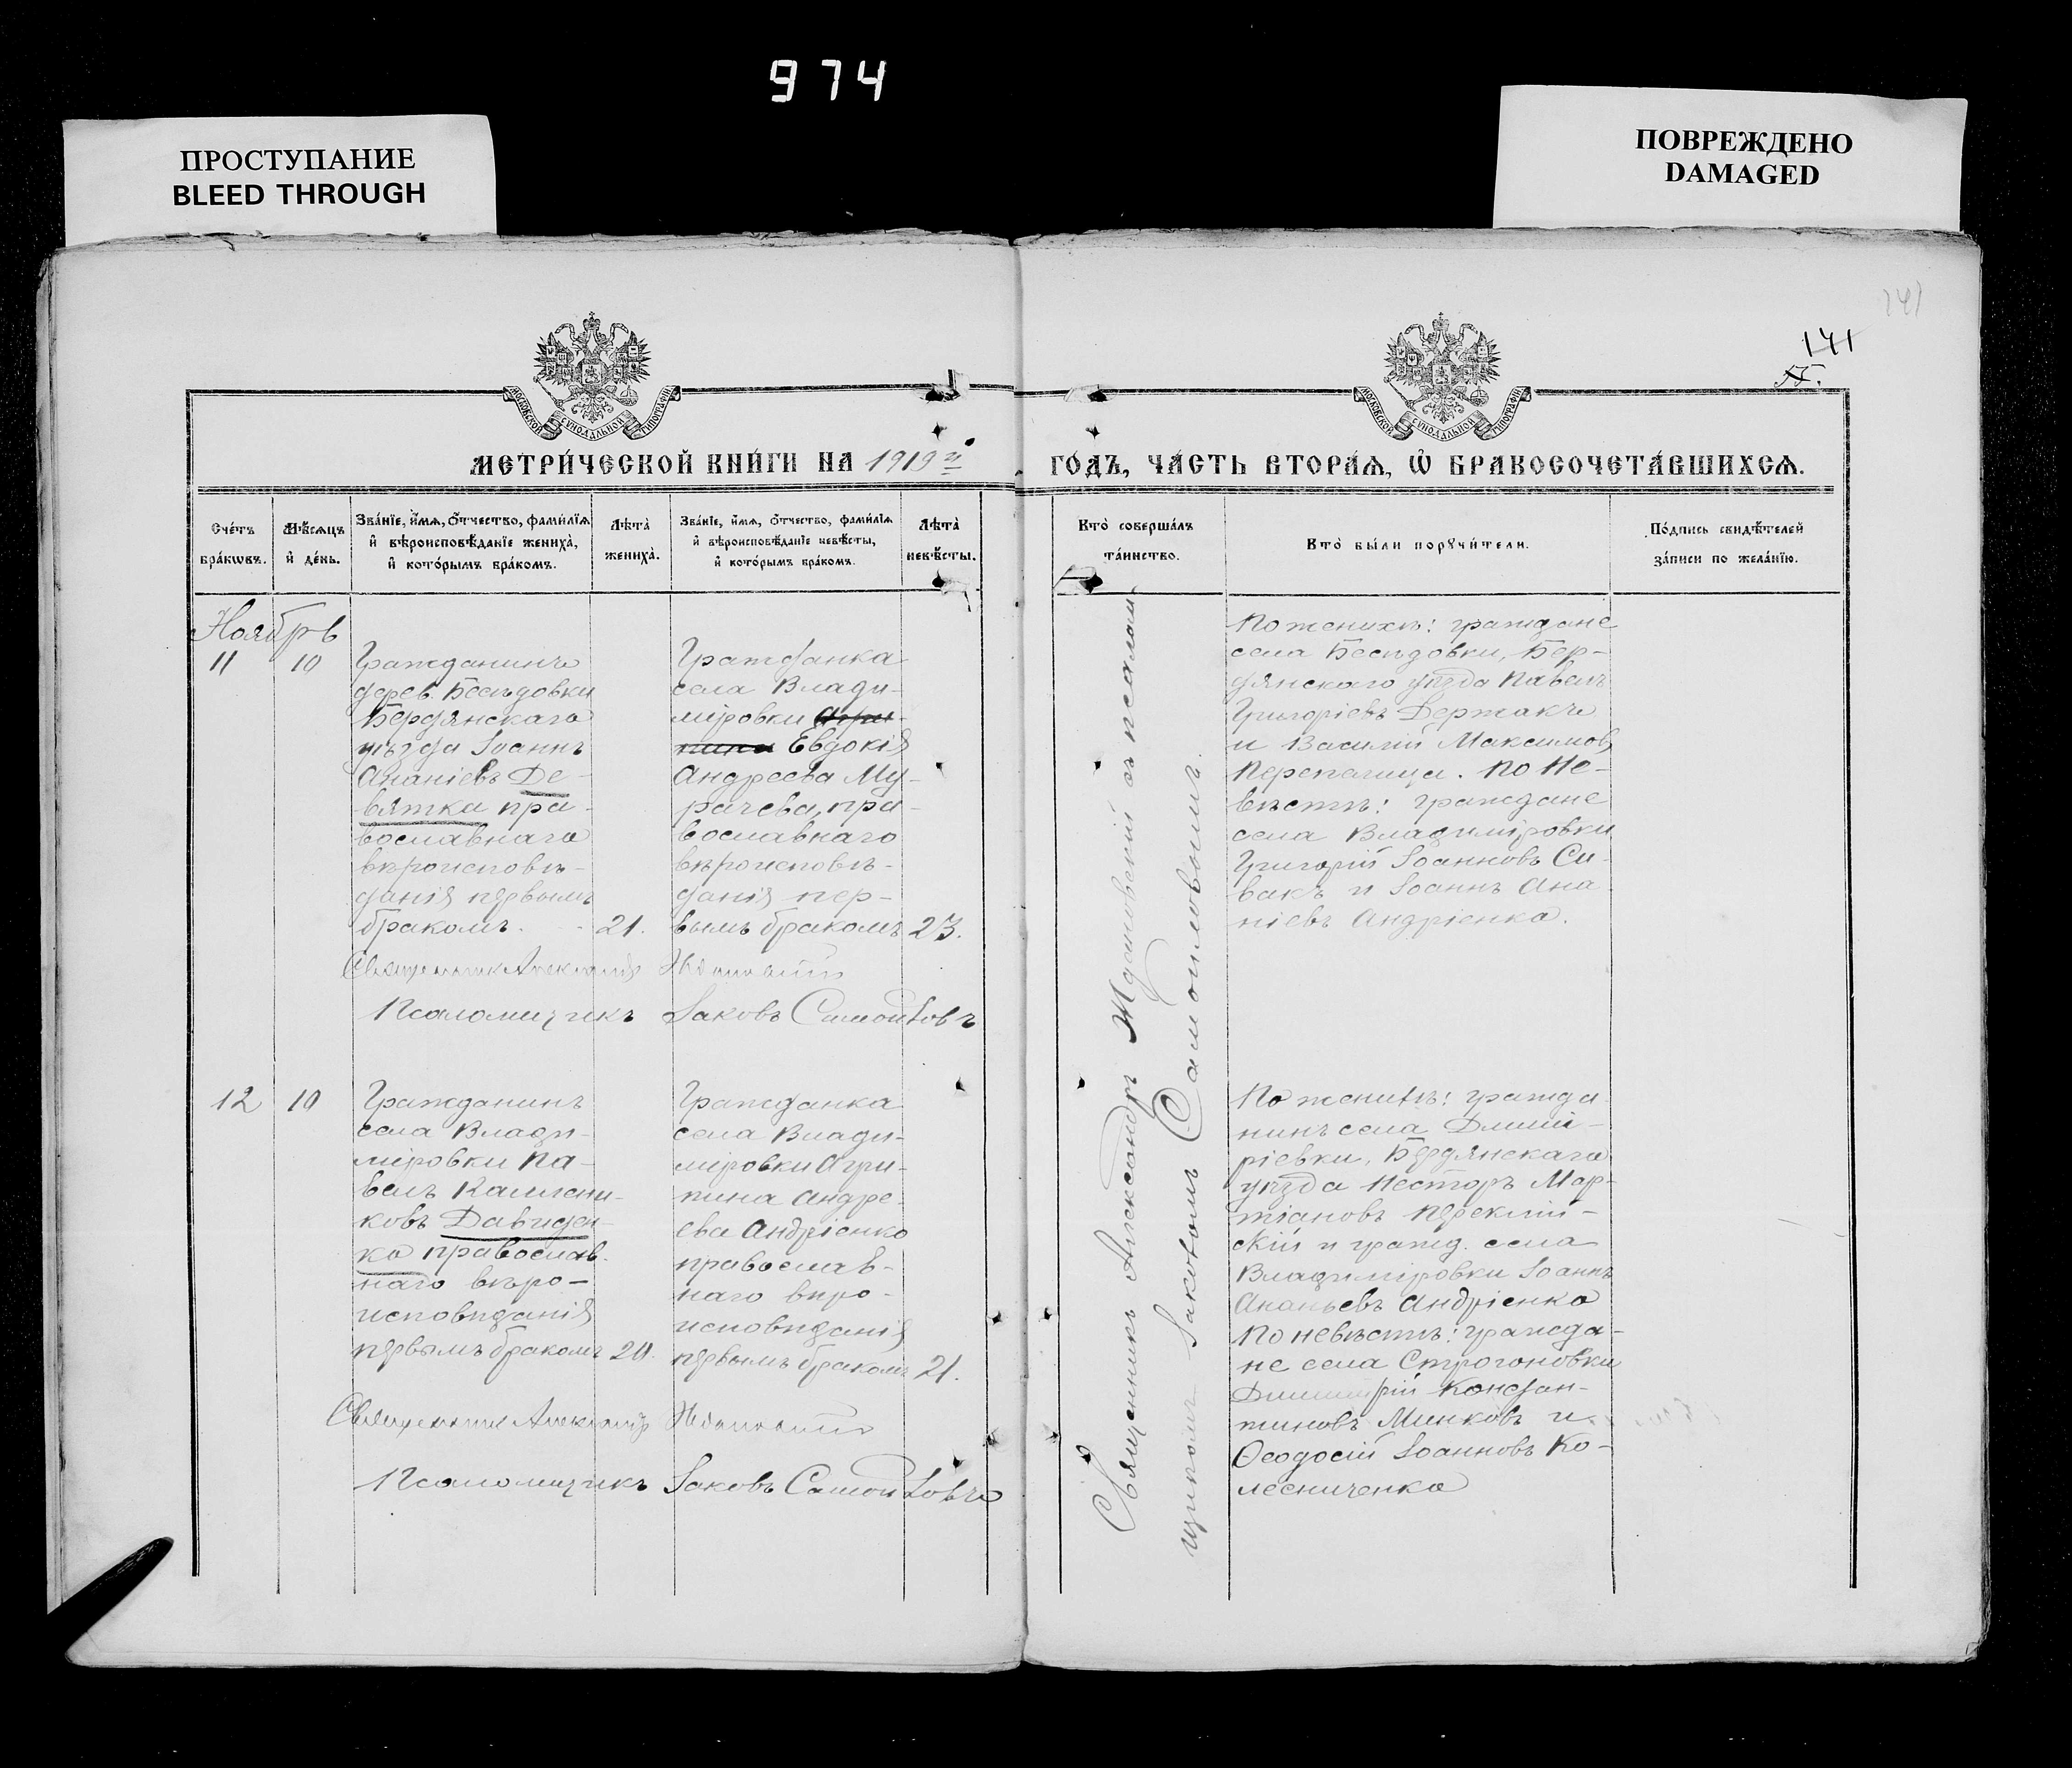 974
ПРОСТУПАНИЕ
BLEED THROUGH
ПОВРЕЖДЕНО
DAMAGED
141
141
МОСКОВСКОЙ СѴНОДАЛЬНОЙ ТИПОГРАФІИ
МОСКОВСКОЙ СѴНОДАЛЬНОЙ ТИПОГРАФІИ
МЕТРИ́ЧЕСКОЙ КНИ́ГИ НА 1919й
ГО́ДЪ, ЧА́СТЬ ВТОРА́Я, Ѡ҆ БРАКОСОЧЕТА́ВШИХСЯ.
Сче́тъ бра́кѡвъ.
Мѣ́сяцъ и҆ де́нь.
Зва́нїе, и҆́мя, ѻ҆́тчество, фами́лїя
и҆ вѣроисповѣ́данїе жениха̀,
и҆ кото́рымъ бра́комъ.
Лѣта̀ жениха̀.
Зва́нїе, и҆́мя, ѻ҆́тчество, фами́лїя
и҆ вѣроисповѣ́данїе невѣ́сты,
и҆ кото́рымъ бра́комъ.
Лѣта̀ невѣ́сты.
Кто̀ соверша́лъ
та́инство.
Кто̀ бы́ли порꙋчи́тели.
По́дпись свидѣ́телей
за́писи по жела́нїю.
Ноябрь
11
10
Гражданинъ
дерев. Бесѣдовки
Бердянскаго
уѣзда Іоаннъ
Ананіевъ Де-
вятка пра-
вославнаго
вѣроисповѣ-
данія первымъ
бракомъ.
21.
Гражданка
села Влади-
міровки Агри-
пина Евдокія
Андреева Му-
рачева, пра-
вославнаго
вѣроисповѣ-
данія пер-
вымъ бракомъ
23.
Священникъ Александръ Ждановскій
Псаломщикъ Іаковъ Самойловъ
Священникъ Александръ Ждановскій съ псалом-
щикомъ Іаковомъ Самойловымъ.
По женихѣ: граждане
села Бесѣдовки, Бер-
дянскаго уѣзда Павелъ
Григоріевъ Держакъ
и Василій Максимовъ
Перепелица. По не-
вѣстѣ: граждане
села Владиміровки
Григорій Іоанновъ Си-
вакъ и Іоаннъ Ана-
ніевъ Андріенко.
12
10
Гражданинъ
села Влади-
міровки Па-
велъ Каллини-
ковъ Давиден-
ко православ-
наго вѣро-
исповѣданія
первымъ бракомъ
20.
Гражданка
села Влади-
міровки Агри-
пина Андре-
ева Андріенко
православ-
наго вѣро-
исповѣданія
первымъ бракомъ
21.
Священникъ Александръ Ждановскій
Псаломщикъ Іаковъ Самойловъ
По женихѣ: гражда-
нинъ села Дмит-
ріевки, Бердянскаго
уѣзда Несторъ Мар-
тіановъ
и гражд. села
Владиміровки Іоаннъ
Ананьевъ Андріенко
По невѣстѣ: гражда-
не села Строгоновки
Димитрій Констан-
тиновъ Минковъ и
Ѳеодосій Іоанновъ Ко-
лесниченко